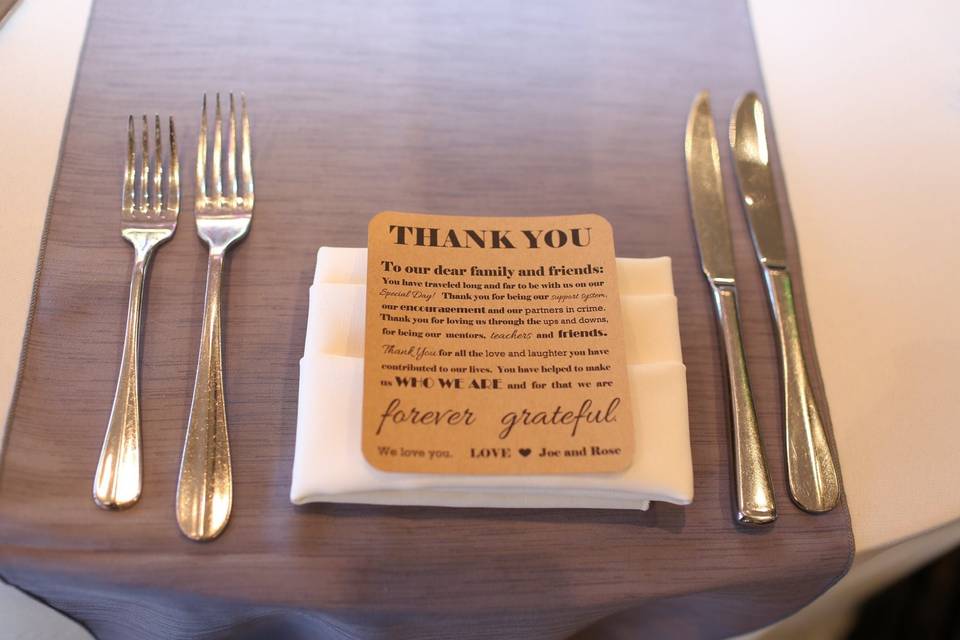 THANK YOU
To our dear family and friends:
You have traveled long and far to be with us on our
Special Day! Thank you for being our support system,
our encouragement and our partners in crime.
Thank you for loving us through the ups and downs,
for being our mentors, teachers and friends.
Thank You for all the love and laughter you have
contributed to our lives. You have helped to make
us WHO WE ARE and for that we are
forever grateful.
We love you. LOVE ♥ Joe and Rose